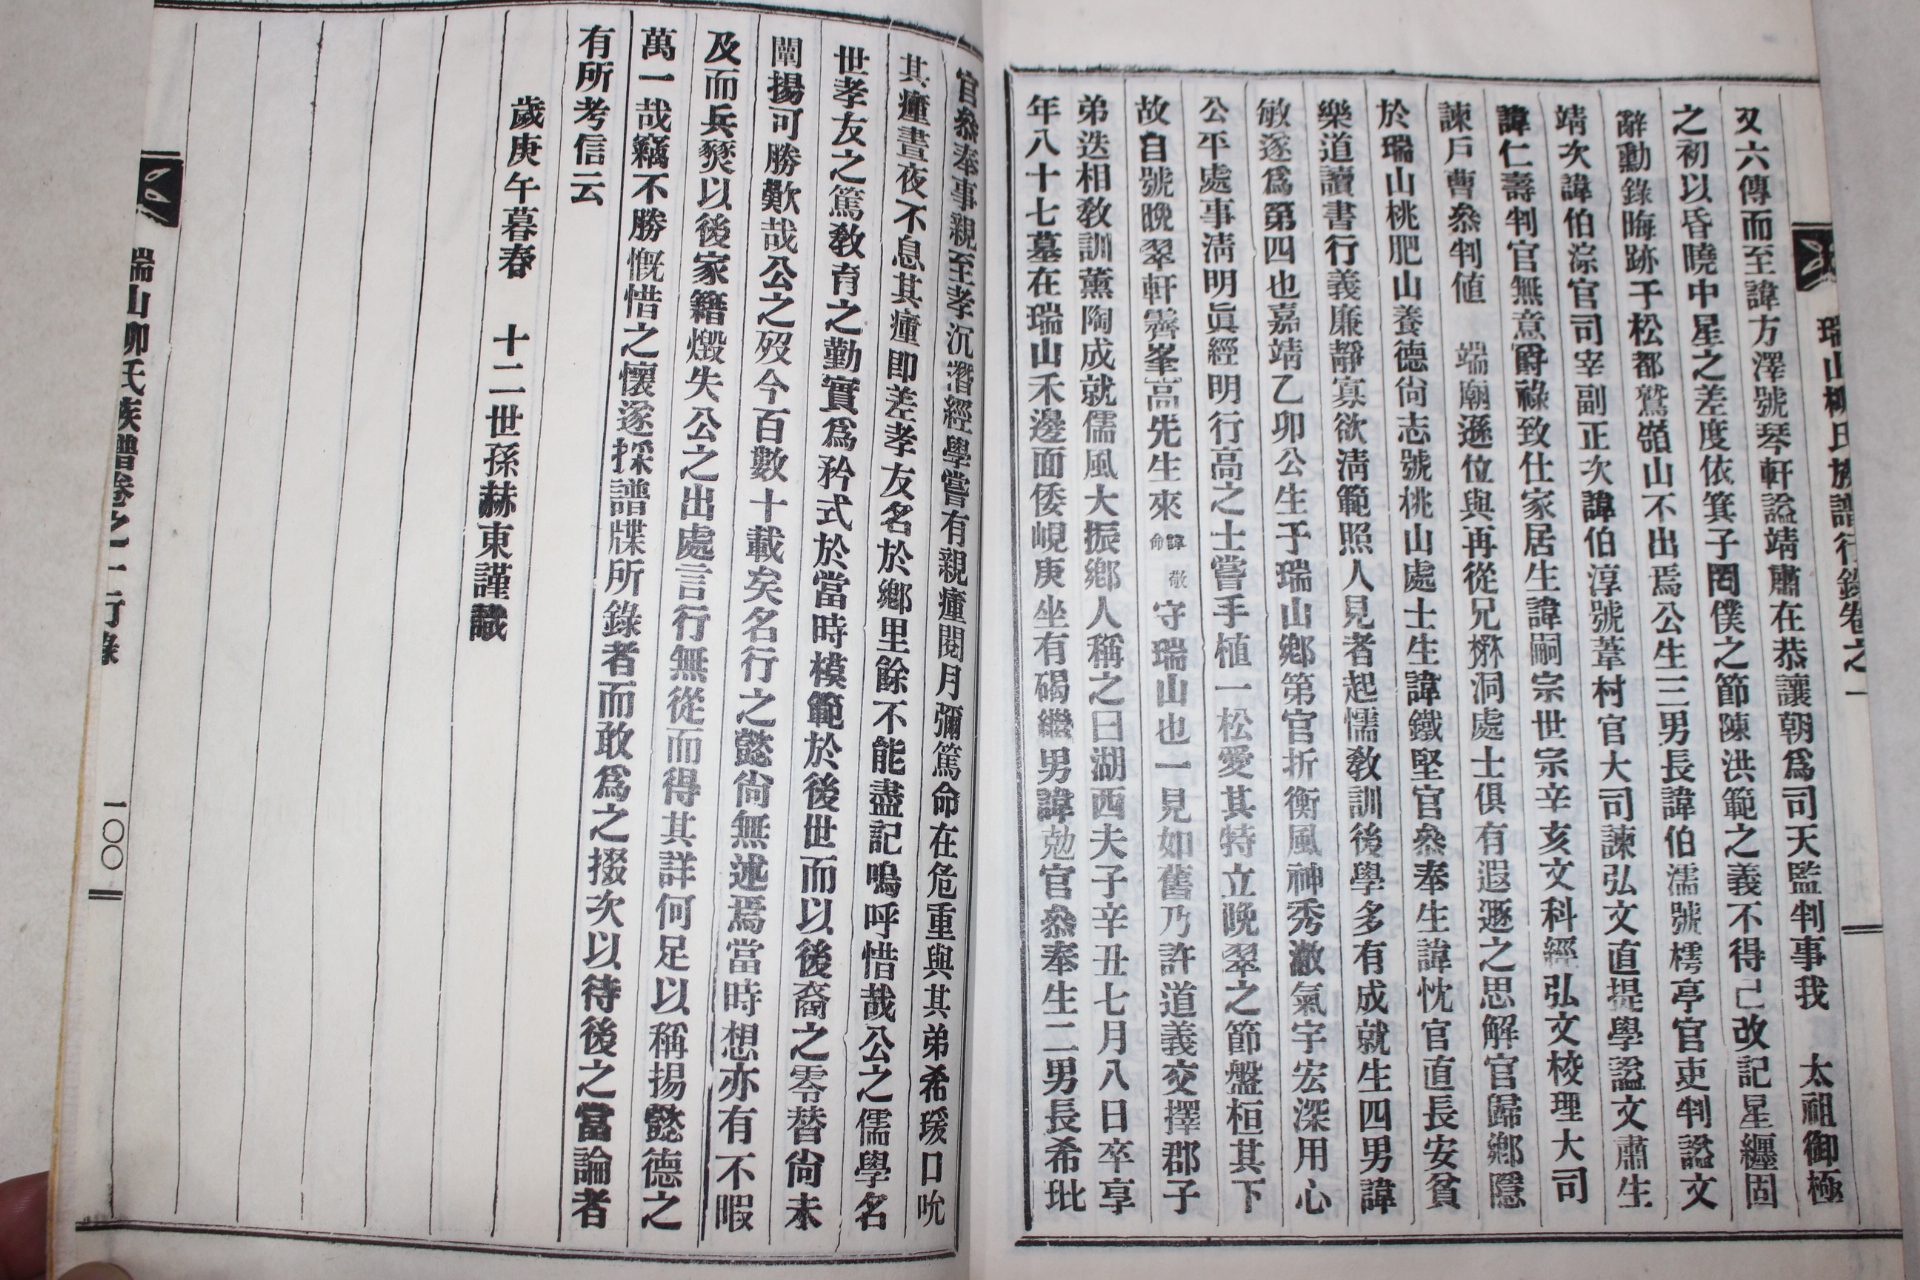 瑞山柳氏族譜行錄卷之一
又六傳而至諱方澤號琴軒謚靖肅在恭讓朝爲司天監判事我 太祖御極
之初以昏曉中星之差度依箕子罔僕之節陳洪範之義不得已改記星纏固
辭勳錄晦跡于松都鷲嶺山不出焉公生三男長諱伯濡號樗亭官吏判謚文
靖次諱伯淙官司宰副正次諱伯淳號葦村官大司諫弘文直提學謚文肅生
諱仁壽判官無意爵祿致仕家居生諱嗣宗世宗辛亥文科經弘文校理大司
諫戶曹叅判値 端廟遜位與再從兄楙洞處士俱有遐遯之思解官歸鄕隱
於瑞山桃肥山養德尙志號桃山處士生諱鐵堅官叅奉生諱忱官直長安貧
樂道讀書行義廉靜寡欲淸範照人見者起懦敎訓後學多有成就生四男諱
敏遂爲第四也嘉靖乙卯公生于瑞山鄕第官折衡風神秀澈氣宇宏深用心
公平處事淸明眞經明行高之士嘗手植一松愛其特立晚翠之節盤桓其下
故自號晚翠軒霽峯高先生來 諱敬命 守瑞山也一見如舊乃許道義交擇郡子
弟迭相敎訓薰陶成就儒風大振鄕人稱之曰湖西夫子辛丑七月八日卒享
年八十七墓在瑞山禾邊面倭峴庚坐有碣繼男諱勊官叅奉生二男長希玭
官叅奉事親至孝沉潛經學嘗有親瘇閱月彌篤命在危重與其弟希瑗口吮
其瘇晝夜不息其瘇卽差孝友名於鄕里餘不能盡記嗚呼惜哉公之儒學名
世孝友之篤敎育之勤實爲矜式於當時模範於後世而以後裔之零替尙未
闡揚可勝歎哉公之歿今百數十載矣名行之懿尙無述焉當時想亦有不暇
及而兵燹以後家籍燬失公之出處言行無從而得其詳何足以稱揚懿德之
萬一哉竊不勝慨惜之懷遂採譜牒所錄者而敢爲之掇次以待後之當論者
有所考信云
歲庚午暮春 十二世孫赫東謹識
瑞山柳氏族譜卷之一行錄 一〇〇